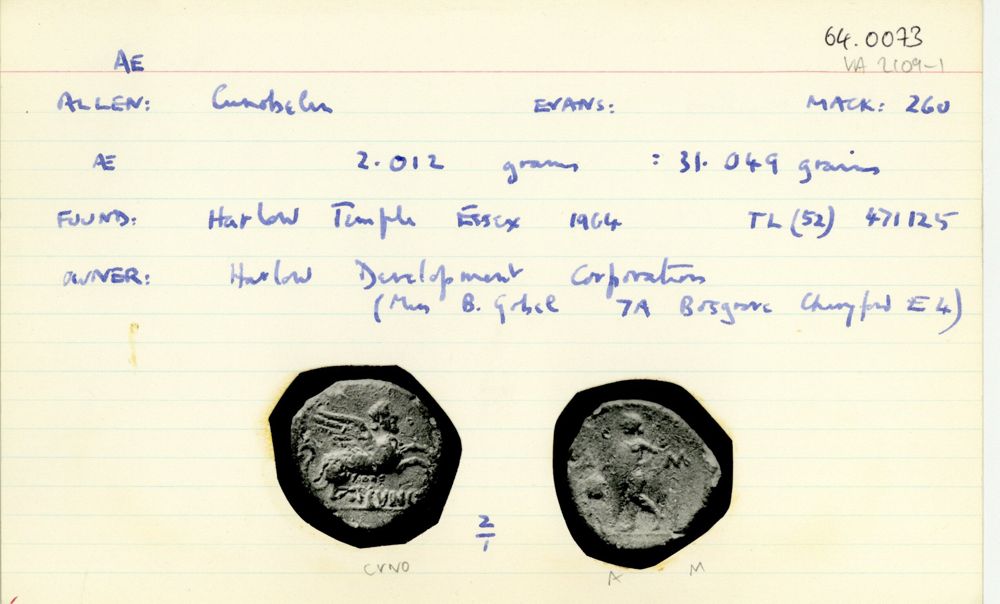 64.0073
AE VA 2109-1
ALLEN: Cunobelin EVANS: MACK: 260
AE 2.012 grams : 31.049 grains
FOUND: Harlow Temple Essex 1964 TL (52) 471125
OWNER: Harlow Development Corporation
(Miss B. Gobel 7A Chingford E4)
CUNO
M
2/1
CVNO A M